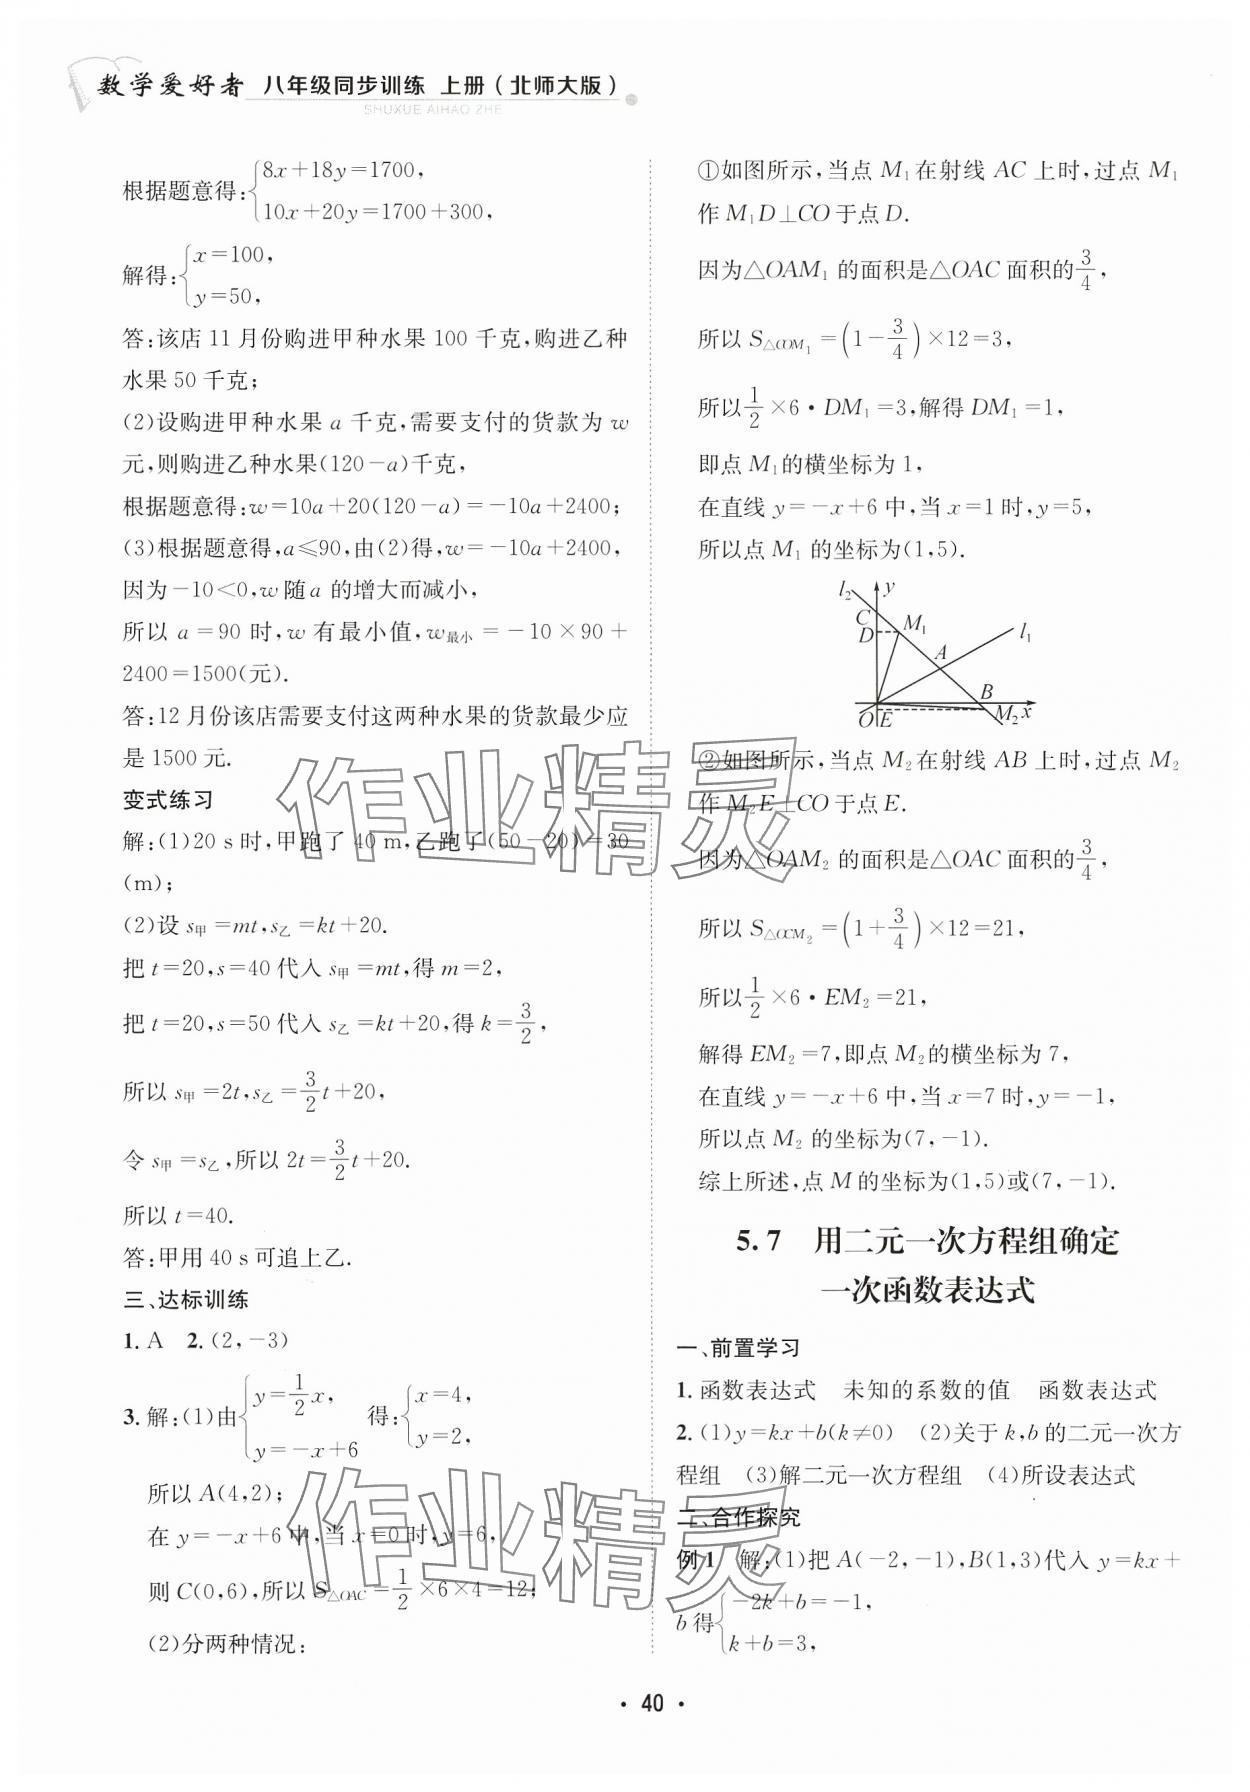 数学爱好者 八年级同步训练 上册(北师大版)
SHUXUE AIHAO ZHE
根据题意得:{8x+18y=1700,
10x+20y=1700+300,
解得:{x=100,
y=50,
答:该店11月份购进甲种水果100千克,购进乙种
水果50千克;
(2)设购进甲种水果a千克,需要支付的货款为w
元,则购进乙种水果(120-a)千克,
根据题意得:w=10a+20(120-a)=-10a+2400;
(3)根据题意得,a≤90,由(2)得,w=-10a+2400,
因为-10<0,w随a的增大而减小,
所以a=90时,w有最小值,w最小=-10×90+
2400=1500(元).
答:12月份该店需要支付这两种水果的货款最少应
是1500元.
变式练习
解:(1)20 s时,甲跑了40 m,乙跑了(50-20)=30
(m);
(2)设s甲=mt,s乙=kt+20.
把t=20,s=40代入s甲=mt,得m=2,
把t=20,s=50代入s乙=kt+20,得k=3/2,
所以s甲=2t,s乙=3/2t+20,
令s甲=s乙,所以2t=3/2t+20.
所以t=40.
答:甲用40 s可追上乙.
三、达标训练
1.A 2.(2,-3)
3.解:(1)由{y=1/2x,
y=-x+6 得:{x=4,
y=2,
所以A(4,2);
在y=-x+6中,当x=0时,y=6,
则C(0,6),所以S△OAC=1/2×6×4=12;
(2)分两种情况:
①如图所示,当点M1在射线AC上时,过点M1
作M1D⊥CO于点D.
因为△OAM1的面积是△OAC面积的3/4,
所以S△COM1=(1-3/4)×12=3,
所以1/2×6·DM1=3,解得DM1=1,
即点M1的横坐标为1,
在直线y=-x+6中,当x=1时,y=5,
所以点M1的坐标为(1,5).
l2 y
C
D M1 l1
A
B
O E M2 x
②如图所示,当点M2在射线AB上时,过点M2
作M2E⊥CO于点E.
因为△OAM2的面积是△OAC面积的3/4,
所以S△OCM2=(1+3/4)×12=21,
所以1/2×6·EM2=21,
解得EM2=7,即点M2的横坐标为7,
在直线y=-x+6中,当x=7时,y=-1,
所以点M2的坐标为(7,-1).
综上所述,点M的坐标为(1,5)或(7,-1).
5.7 用二元一次方程组确定
一次函数表达式
一、前置学习
1.函数表达式 未知的系数的值 函数表达式
2.(1)y=kx+b(k≠0) (2)关于k,b的二元一次方
程组 (3)解二元一次方程组 (4)所设表达式
二、合作探究
例1 解:(1)把A(-2,-1),B(1,3)代入y=kx+
b得{-2k+b=-1,
k+b=3,
作业精灵
作业精灵
·40·